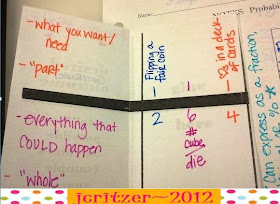 Name
Probabi
- what you want/
need
- "part"
- everything that
COULD happen
- "whole"
Flipping a
fair coin
1
2
1
6
# cube
die
in a deck
of cards
1
4
can express as a fraction,
jcritzer~2012